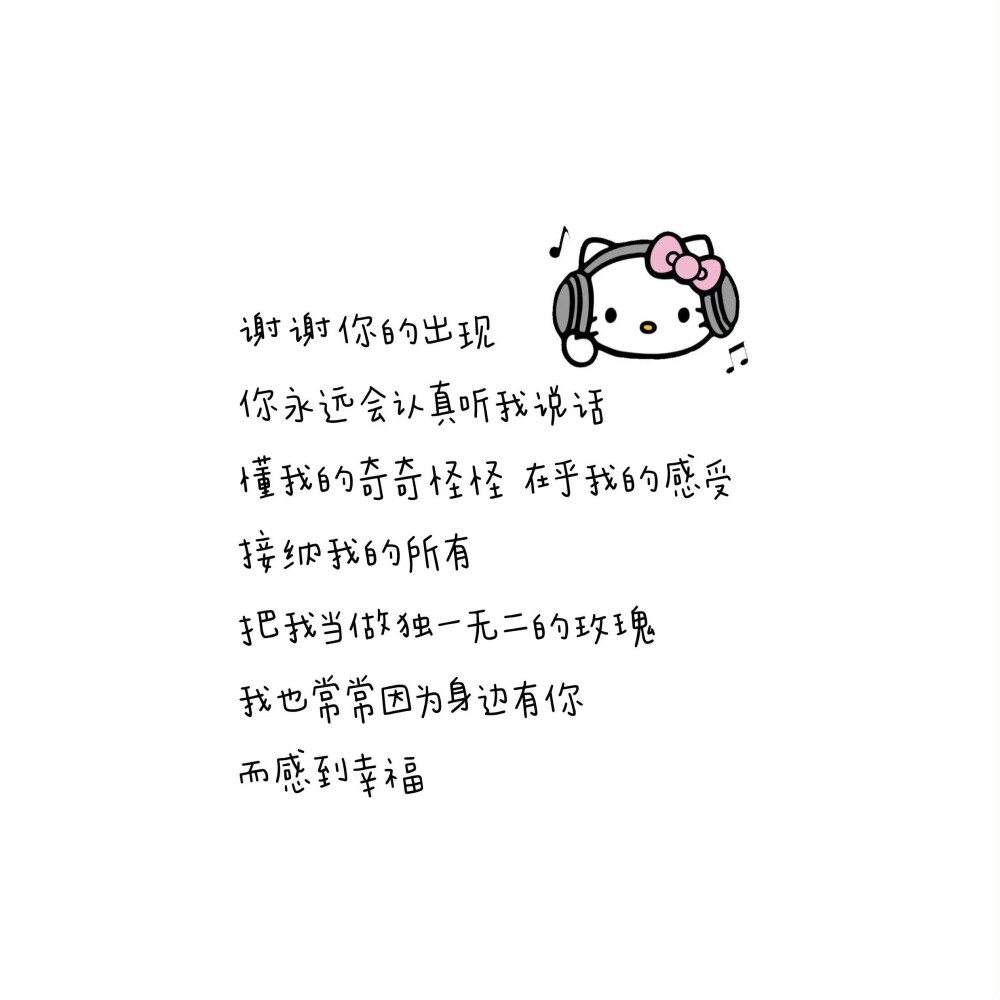 谢谢你的出现
你永远会认真听我说话
懂我的奇奇怪怪 在乎我的感受
接纳我的所有
把我当做独一无二的玫瑰
我也常常因为身边有你
而感到幸福